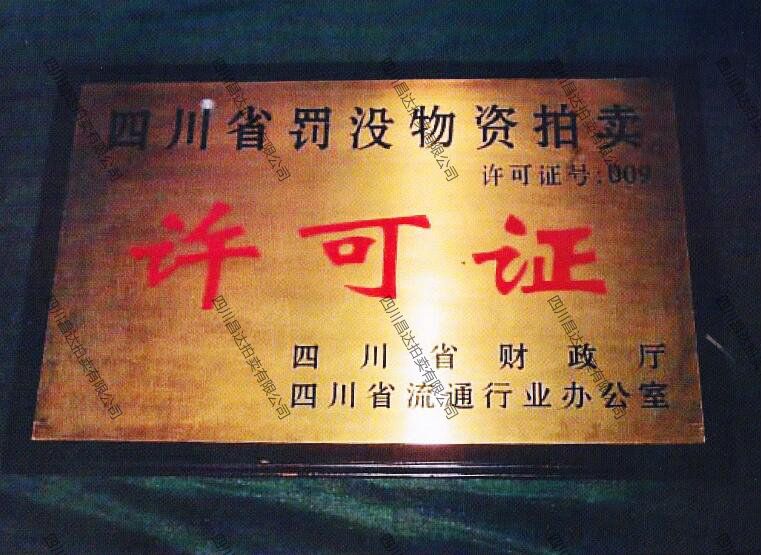 四川省罚没物资拍卖
许可证号:009
许可证
四川省财政厅
四川省流通行业办公室
四川昌达拍卖有限公司